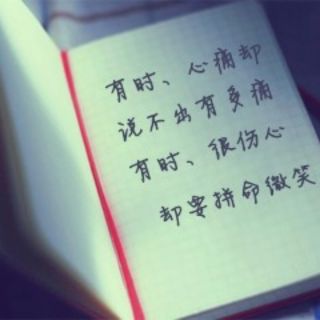 有时、心痛却
说不出有多痛
有时、很伤心
却要拼命微笑